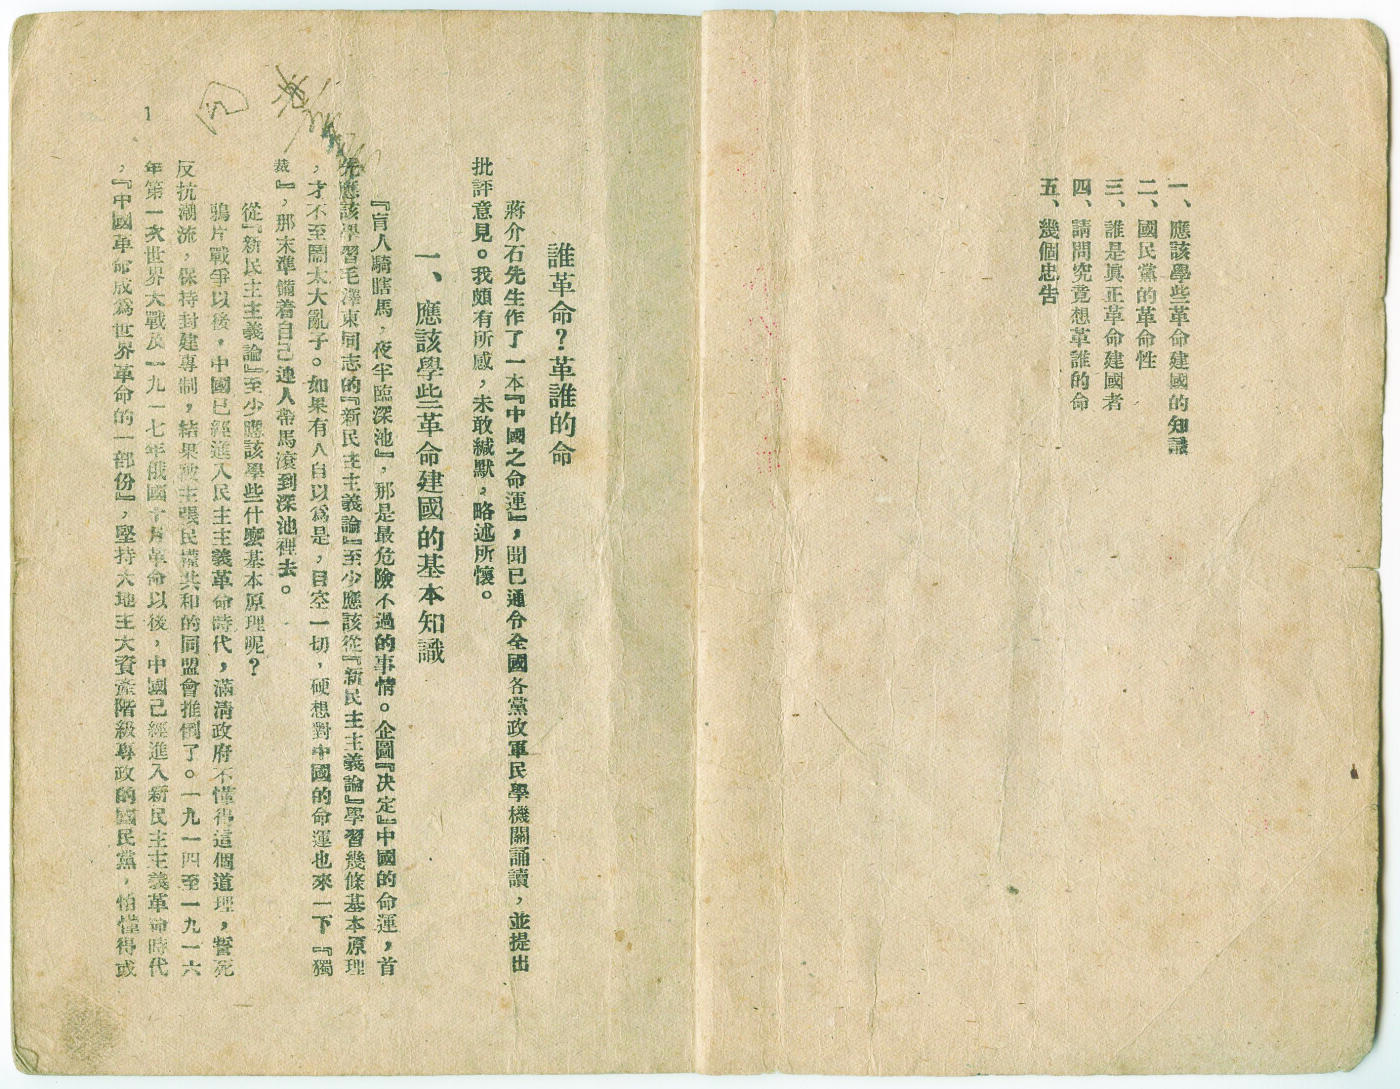 一、應該學些革命建國的知識
二、國民黨的革命性
三、誰是眞正革命建國者
四、請問究竟想革誰的命
五、幾個忠告
誰革命？革誰的命
蔣介石先生作了一本『中國之命運』，聞已通令全國各黨政軍民學機關誦讀，並提出
批評意見。我頗有所感，未敢緘默，略述所懷。
一、應該學些革命建國的基本知識
『盲人騎瞎馬，夜半臨深池』，那是最危險不過的事情。企圖『决定』中國的命運，首
先應該學習毛澤東同志的『新民主主義論』至少應該從『新民主主義論』學習幾條基本原理
，才不至鬧太大亂子。如果有人自以爲是，目空一切，硬想對中國的命運也來一下『獨
裁』，那末準備着自己連人帶馬滾到深池裡去。
從『新民主主義論』至少應該學些什麽基本原理呢？
鴉片戰爭以後，中國已經進入民主主義革命時代，滿淸政府不懂得這個道理，誓死
反抗潮流，保持封建專制，結果被主張民權共和的同盟會推倒了。一九一四至一九一六
年第一次世界大戰及一九一七年俄國十月革命以後，中國已經進入新民主主義革命時代
，『中國革命成爲世界革命的一部份』，堅持大地主大資產階級專政的國民黨，怕懂得或
1